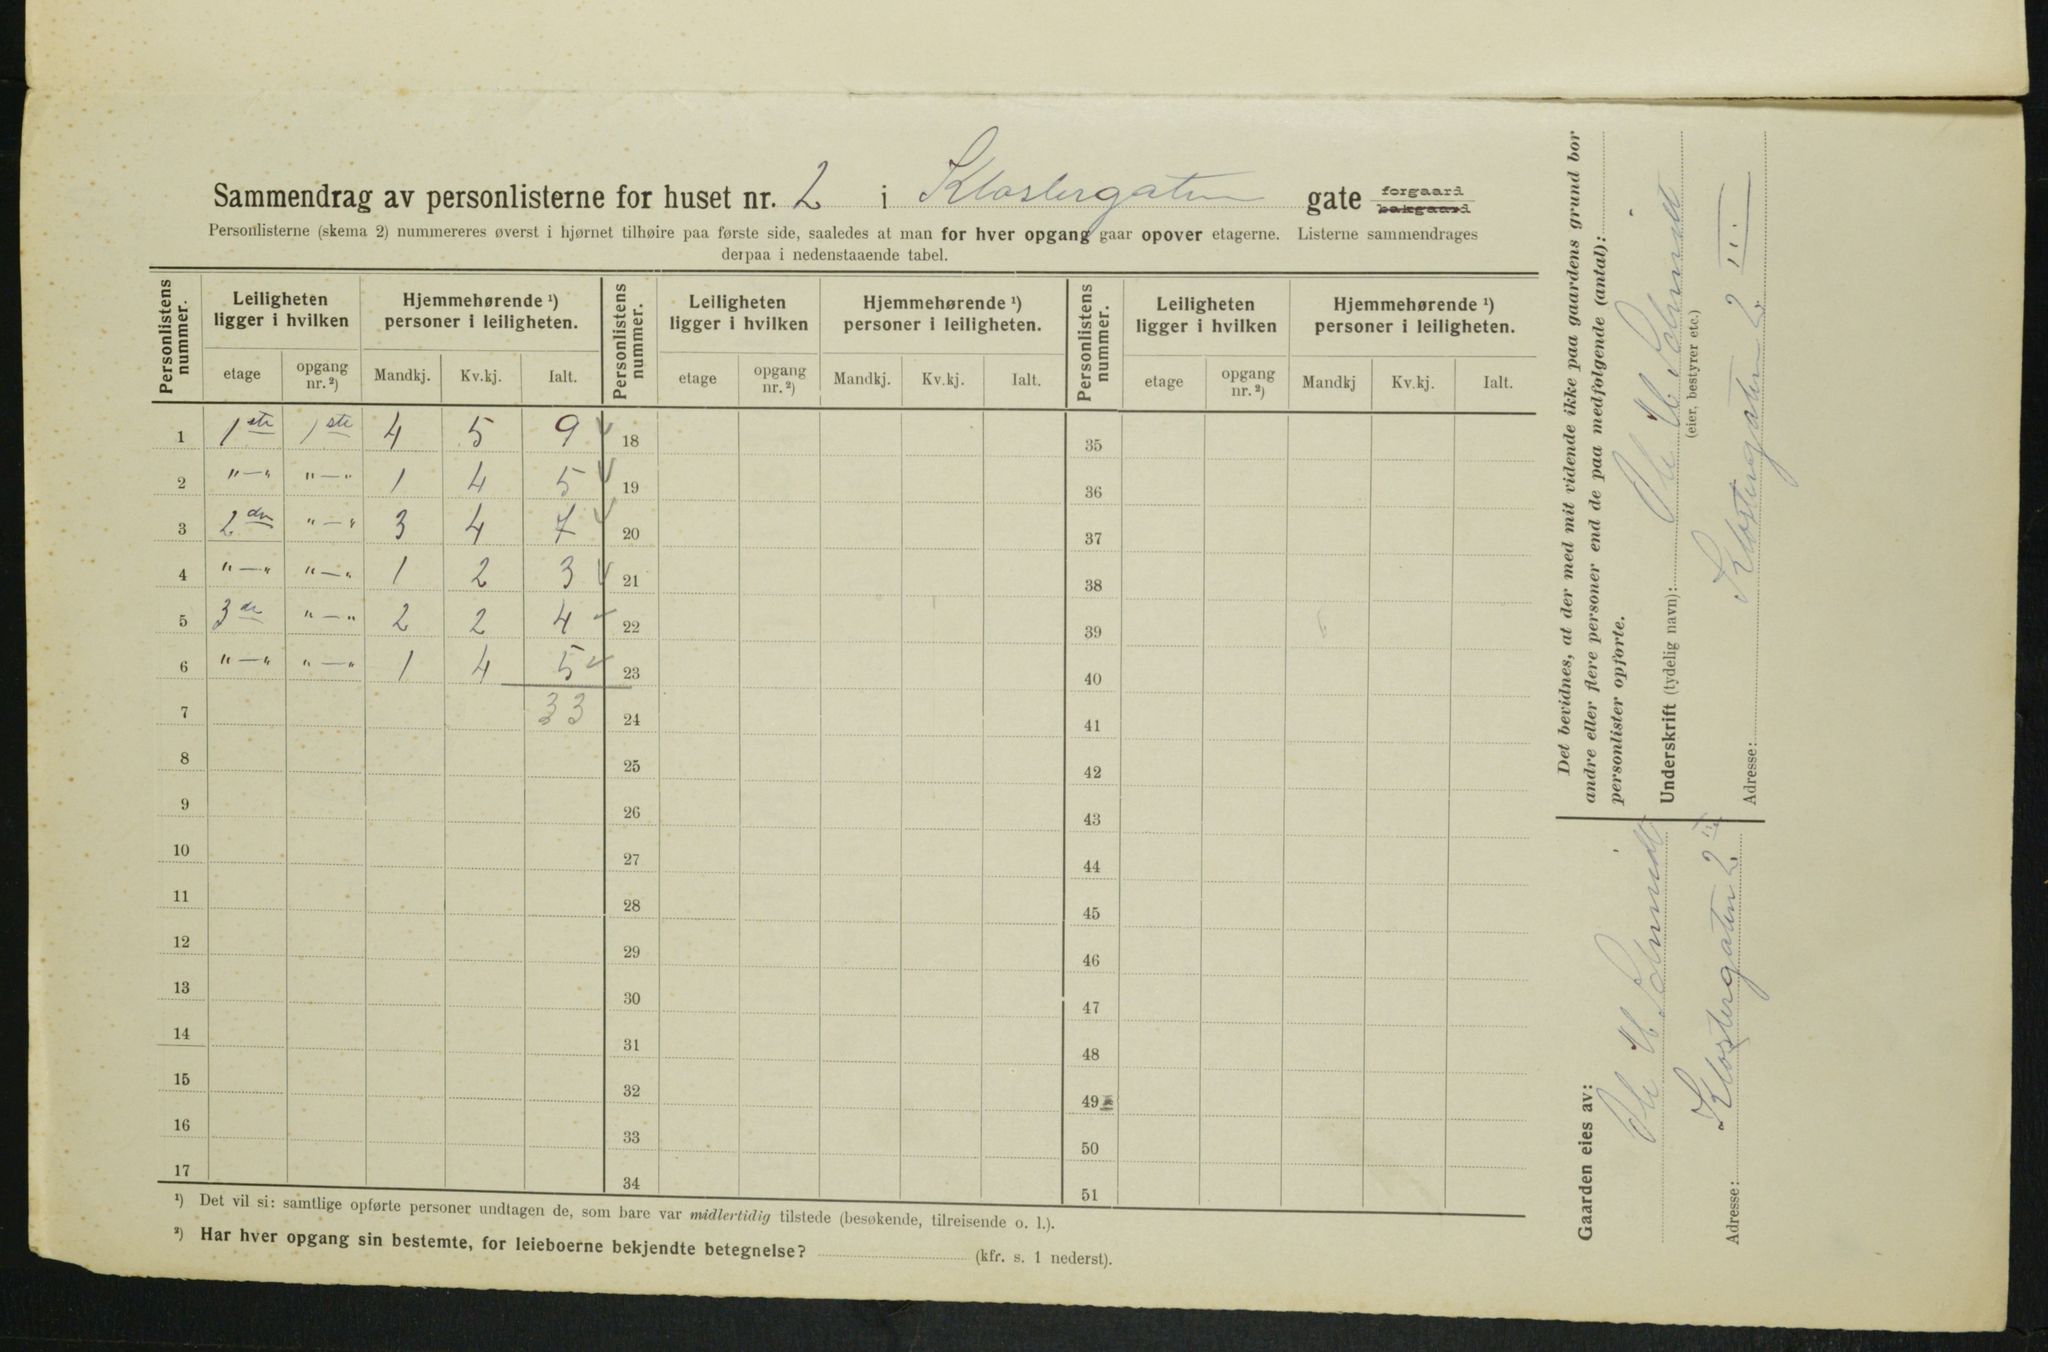 Sammendrag av personlisterne for huset nr. 2 i Klostergaten gate forgaard bakgaard
Personlisterne (skema 2) nummereres øverst i hjørnet tilhøire paa første side, saaledes at man for hver opgang gaar opover etagerne. Listerne sammendrages
derpaa i nedenstaaende tabel.
Personlistens nummer. Leiligheten ligger i hvilken Hjemmehørende ¹) personer i leiligheten. Personlistens nummer. Leiligheten ligger i hvilken Hjemmehørende ¹) personer i leiligheten. Personlistens nummer. Leiligheten ligger i hvilken Hjemmehørende ¹) personer i leiligheten.
etage opgang nr.²) Mandkj. Kv.kj. Ialt. etage opgang nr.²) Mandkj. Kv.kj. Ialt. etage opgang nr.²) Mandkj Kv.kj. Ialt.
1 1ste 1ste 4 5 9 18 35
2 "—" "—" 1 4 5 19 36
3 2den "—" 3 4 7 20 37
4 "—" "—" 1 2 3 21 38
5 3de "—" 2 2 4 22 39
6 "—" "—" 1 4 5 23 40
7 33 24 41
8 25 42
9 26 43
10 27 44
11 28 45
12 29 46
13 30 47
14 31 48
15 32 49
16 33 50
17 34 51
¹) Det vil si: samtlige opførte personer undtagen de, som bare var midlertidig tilstede (besøkende, tilreisende o. l.).
²) Har hver opgang sin bestemte, for leieboerne bekjendte betegnelse? (kfr. s. 1 nederst).
Det bevidnes, at der med mit vidende ikke paa gaardens grund bor
andre eller flere personer end de paa medfolgende (antal):
personlister opforte.
Underskrift (tydelig navn): Ole H. Schmidt
(eier, bestyrer etc.)
Adresse: Klostergaten 2 III
Gaarden eies av:
Ole H. Schmidt
Adresse: Klostergaten 2 III